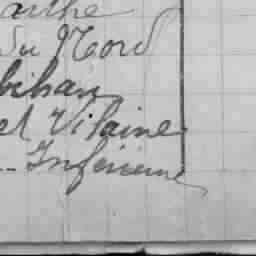 arthe
du Nord
bihan
et Vilaine
Inférieure